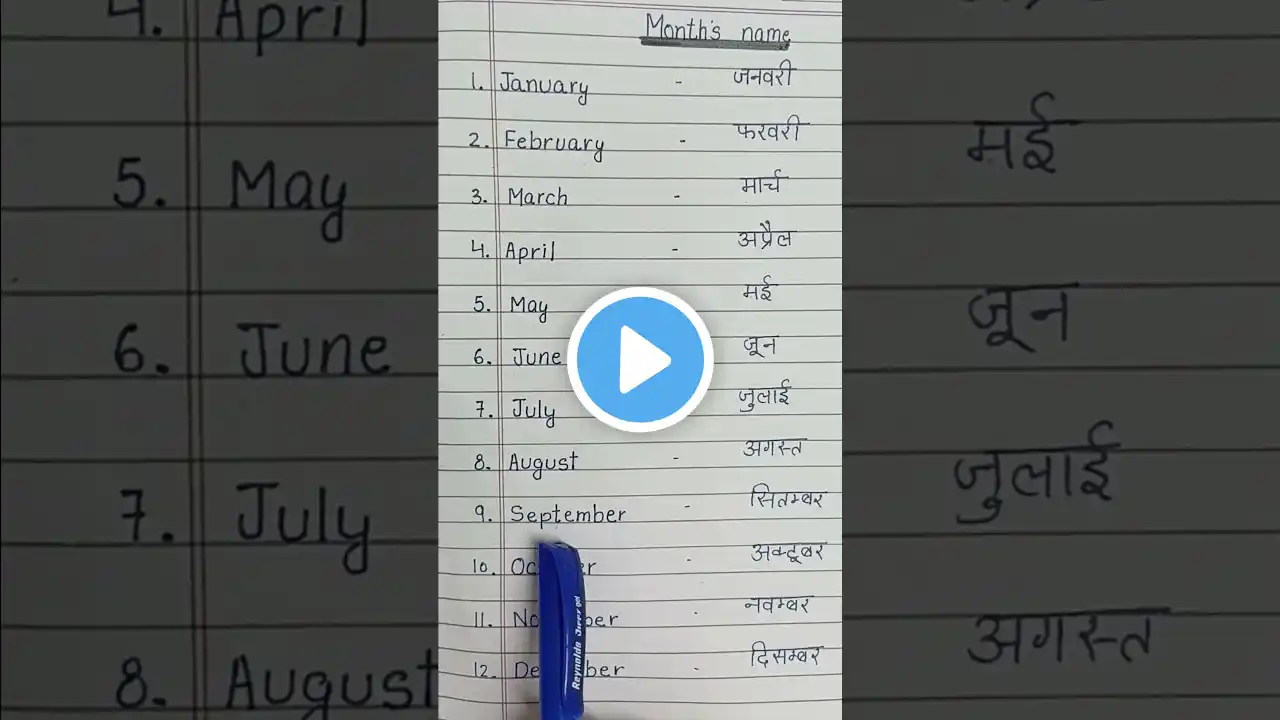 Month's name
1. January - जनवरी
2. February - फरवरी
3. March - मार्च
4. April - अप्रैल
5. May मई
6. June जून
7. July जुलाई
8. August - अगस्त
9. September - सितम्बर
10. Oc er - अक्टूबर
11. No ber - नवम्बर
12. De ber - दिसम्बर
Reynolds
4. April
5. May मई
6. June जून
7. July जुलाई
8. August अगस्त